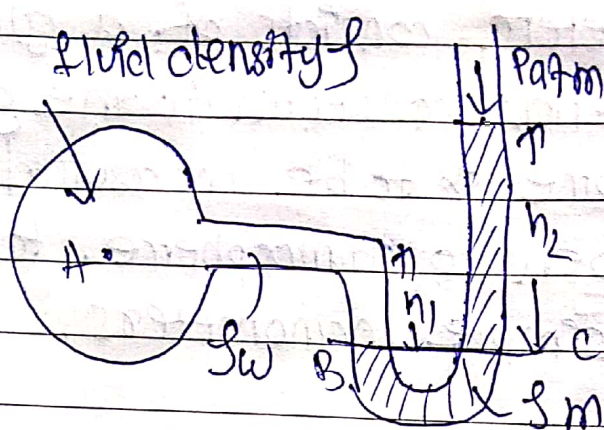 fluid density ρ
Patm
h2
A
h1
ρw
B
C
ρm